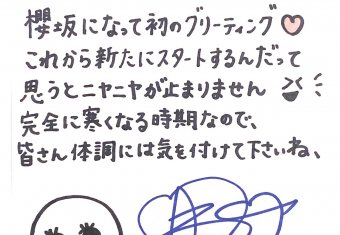 櫻坂になって初のグリーティング♡
これから新たにスタートするんだって
思うとニヤニヤが止まりません
完全に寒くなる時期なので、
皆さん体調には気を付けて下さいね、